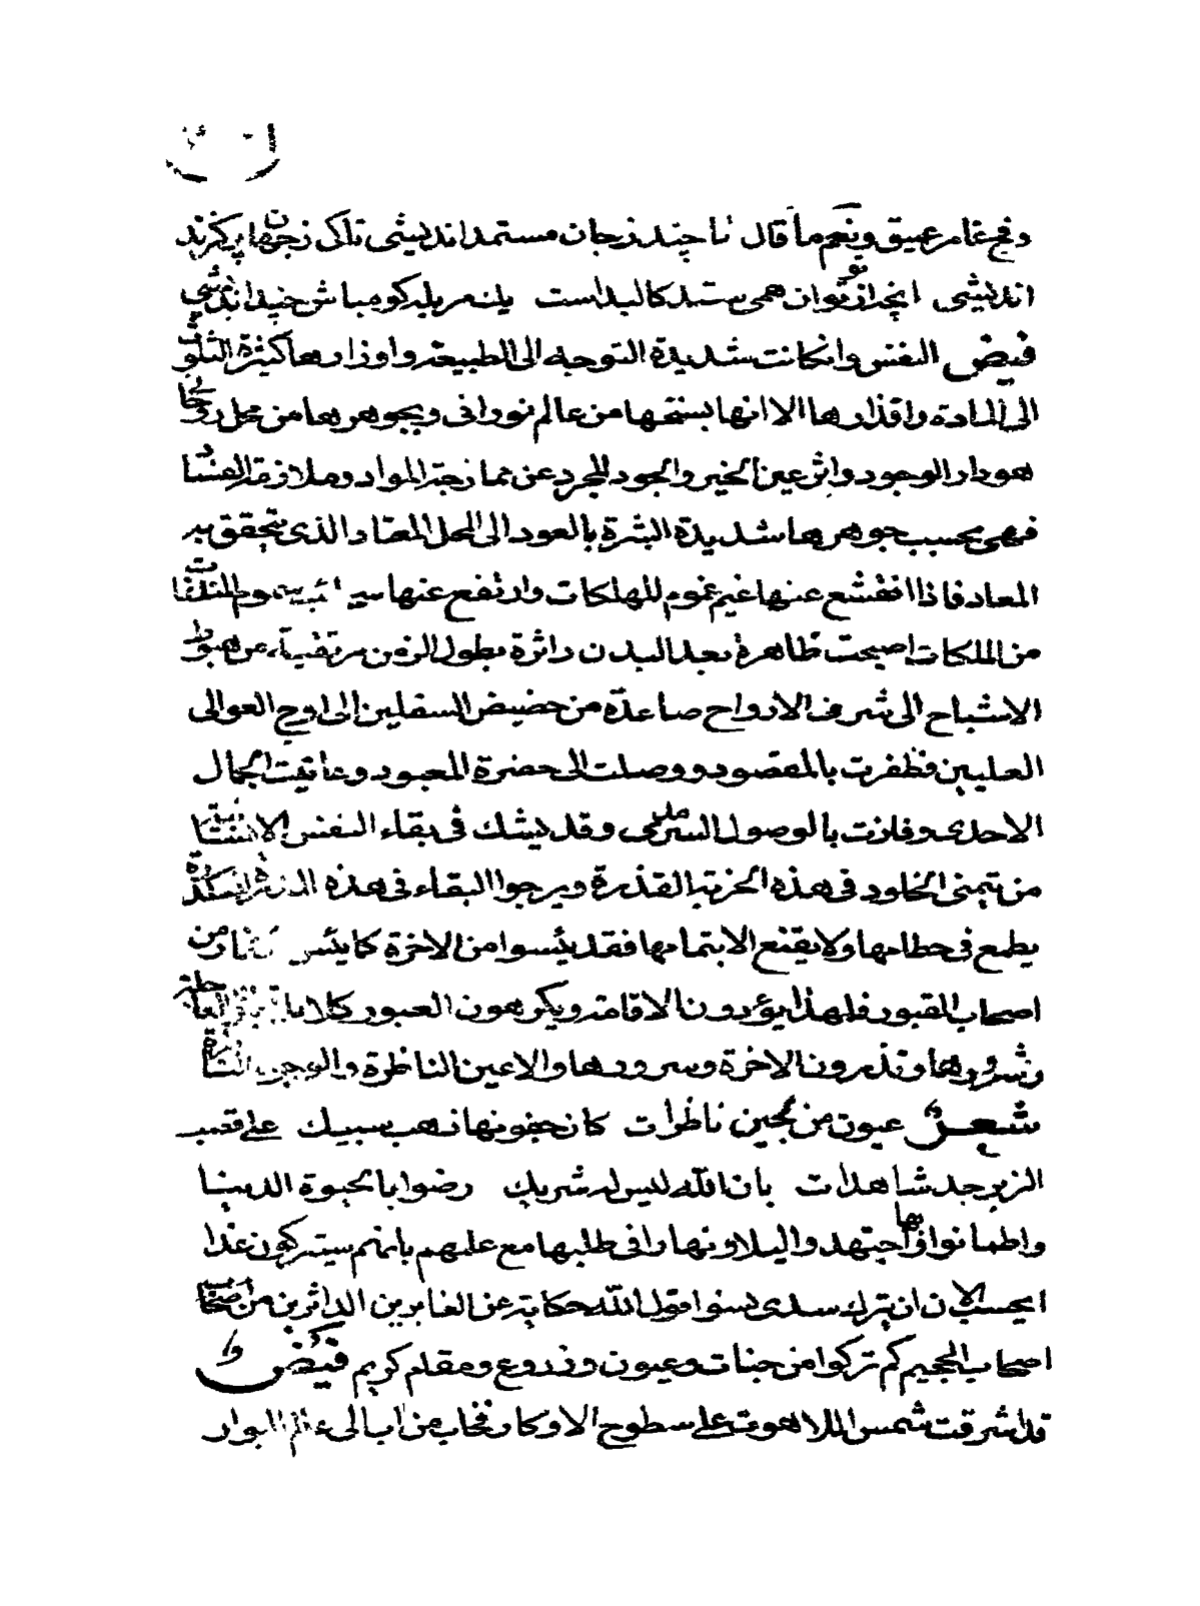 وفج غامر عميق ونعم ما قال تا چند زجان مستمند اندیشی تاکی زجهان پر گزند
اندیشی انچه از تو توان همی ستد کالبد است یک مزبله گو مباش چند اندیشی
فيض النفس وانكانت شديدة التوجه الى الطبيعة واوزارها كثيرة التلوث
الى المادة واقذارها الا انها بسنخها من عالم نورانى وبجوهرها من محل روحانى
هو دار الوجود واثر عين الخير والجود المجرد عن ممازجة المواد وملازمة الفساد
فهى بحسب جوهرها شديدة الشرة بالعود الى المحل المعتاد الذى يتحقق به
المعاد فاذا انقشع عنها غيم غموم المهلكات وارتفع عنها
من الملكات اصبحت ظاهرة بعد البدن داثرة بطول الزمن مرتقية عن هبوط
الاشباح الى شرف الارواح صاعدة من حضيض السفلين الى اوج العوالى
العليين فظفرت بالمقصود ووصلت الى حضرة المعبود وعانيت الجمال
الاحدى وفازت بالوصول السرمدى وقد يشك فى بقاء النفس الانسانية
من يتمنى الخلود فى هذه الخربة القذرة ويرجوا البقاء فى هذه
يطمع فى حطامها ولا يقنع الا بتمامها فقد يئسوا من الاخرة كما يئس الكفار من
اصحاب القبور فلهذا يؤثرون الاقامة ويكرهون العبور كلا بل تحبون العاجلة
وشرورها وتذرون الاخرة وسرورها والاعين الناظرة والوجوه الناضرة
شعر عيون من لجين ناظرات كان جفونها ذهب سبيك على قصب
الزبرجد شاهدات بان الله ليس له شريك رضوا بالحيوة الدنيا
واطمانوا بها واجتهدوا ليلا ونهارا فى طلبها مع علمهم بانهم سيتركون غدا
ايحسب الانسان ان يترك سدى نسوا قول الله حكاية عن الغابرين الداثرين من
اصحاب الجحيم كم تركوا من جنات وعيون وزروع ومقام كريم فيض
قد اشرقت شمس اللاهوت على سطوح الاوكار الى عالم البوار